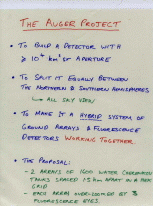 THE AUGER PROJECT
• TO BUILD A DETECTOR WITH
≥ 10⁴ km² sr APERTURE
• TO SPLIT IT EQUALLY BETWEEN
THE NORTHERN & SOUTHERN HEMISPHERES
↳ ALL SKY VIEW
• TO MAKE IT A HYBRID SYSTEM OF
GROUND ARRAYS & FLUORESCENCE
DETECTORS WORKING TOGETHER.
• THE PROPOSAL:
- 2 ARRAYS OF 1600 WATER CERENKOV
TANKS SPACED 1.5 km APART IN A HEX
GRID
- EACH ARRAY OVER-LOOKED BY
FLUORESCENCE EYES.